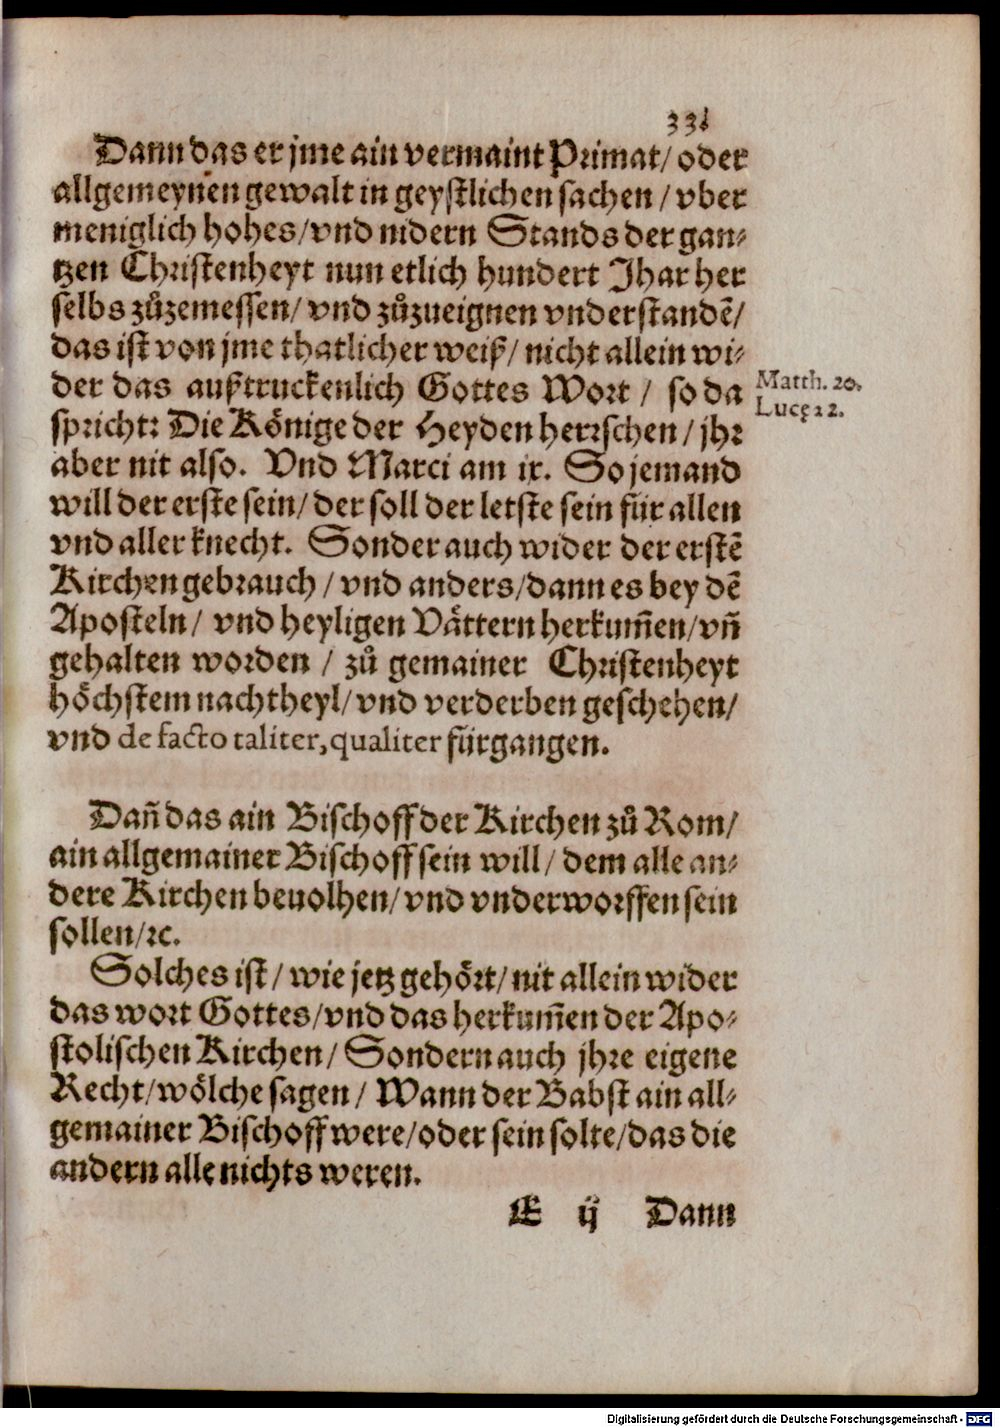 331
Dann das er jme ain vermaint Primat/ oder
allgemeynen gewalt in geystlichen sachen / vber
meniglich hohes/ vnd nidern Stands der gan-
tzen Christenheyt nun etlich hundert Jhar her
selbs zůzemessen/ vnd zůzueignen vnderstandē/
das ist von jme thatlicher weiß/ nicht allein wi-
der das außtruckenlich Gottes Wort / so da
Matth. 20.
Lucę 22.
spricht: Die Könige der Heyden herrschen / jhr
aber nit also. Vnd Marci am ix. So jemand
will der erste sein/ der soll der letste sein für allen
vnd aller knecht. Sonder auch wider der erstē
Kirchen gebrauch / vnd anders/ dann es bey dē
Aposteln/ vnd heyligen Vättern herkum̄en/ vn̄
gehalten worden / zů gemainer Christenheyt
höchstem nachtheyl/ vnd verderben geschehen/
vnd de facto taliter, qualiter fürgangen.
Dan̄ das ain Bischoff der Kirchen zů Rom/
ain allgemainer Bischoff sein will/ dem alle an-
dere Kirchen beuolhen/ vnd vnderworffen sein
sollen/ ꝛc.
Solches ist/ wie jetz gehört/ nit allein wider
das wort Gottes/ vnd das herkum̄en der Apo-
stolischen Kirchen/ Sondern auch jhre eigene
Recht/ wölche sagen/ Wann der Babst ain all-
gemainer Bischoff were/ oder sein solte/ das die
andern alle nichts weren.
E ij Dann
Digitalisierung gefördert durch die Deutsche Forschungsgemeinschaft - DFG